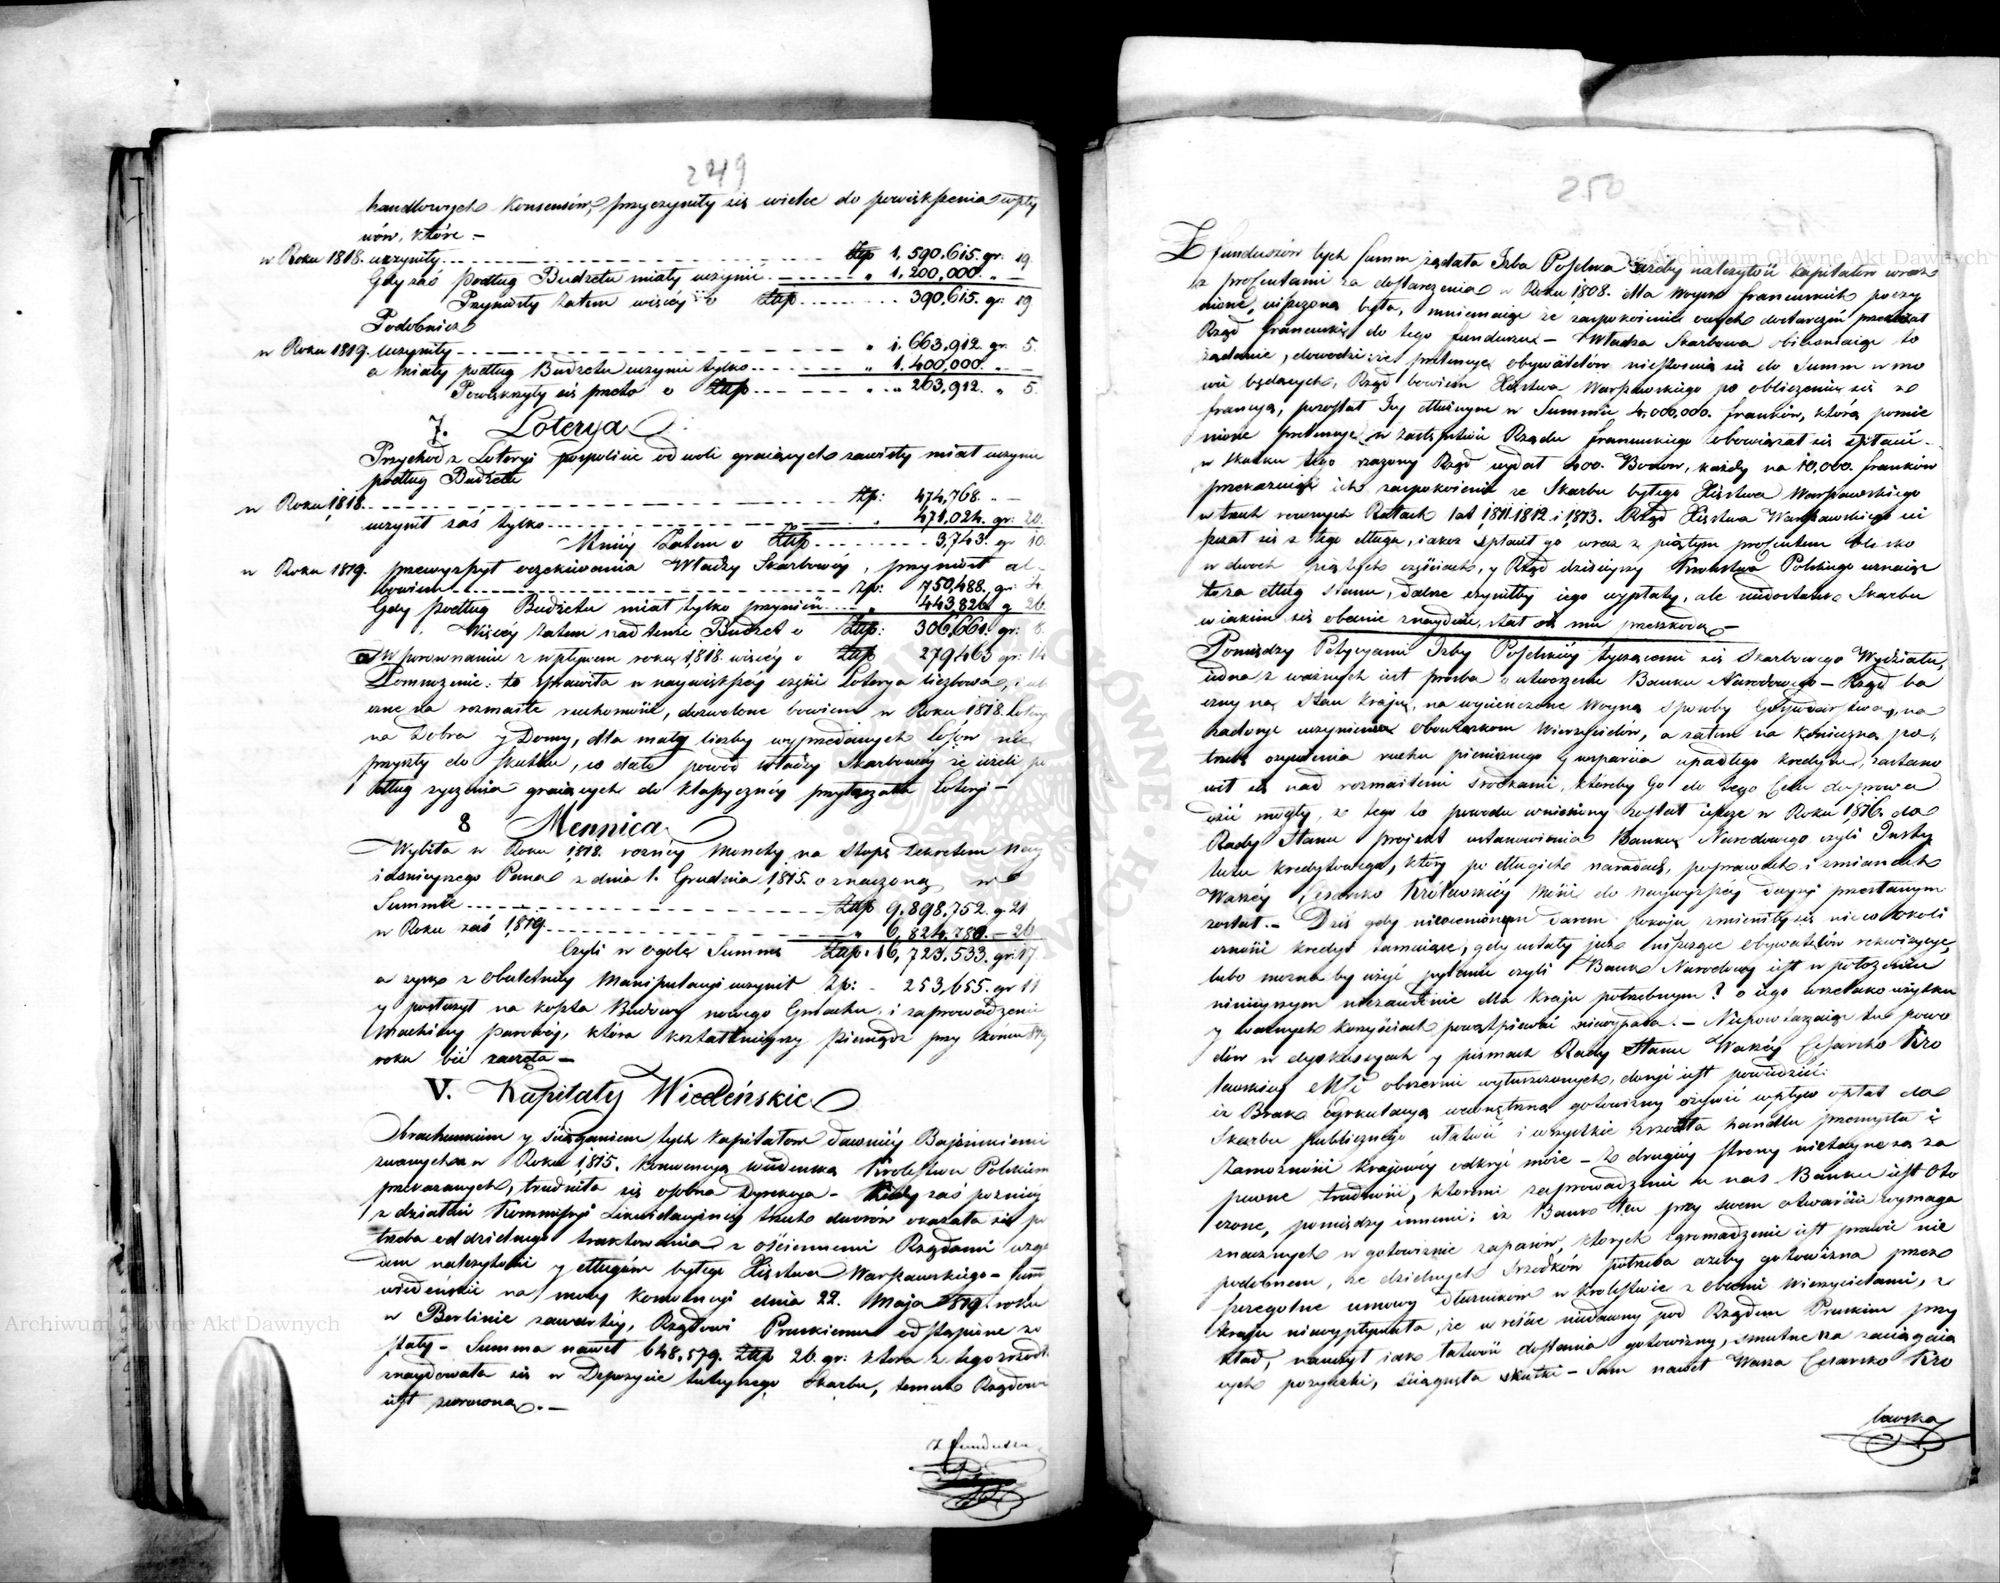 249
handlowych konsensów, przyczyniły się wielce do powiększenia wpły
wów, które –
w Roku 1818. uczyniły Złp 1,590,615. gr: 19
Gdy zaś podług Budżetu miały uczynić " 1,200,000. " –
Przyniosły zatem więcéy o Złp 390,615. gr: 19
Podobnież
w Roku 1819. uczyniły " 1,663,912. gr. 5.
a miały podług Budżetu uczynić tylko " 1,400,000. " –
Powiększyły się przeto o Złp " 263,912. " 5.
7. Loterya
Przychod z Loteryi pospolicie od woli graiących zawisły miał uczynić
podług Budżetu
w Roku 1818. Złp: 474,768. " –
uczynił zaś tylko " 471,024. gr: 20.
Mniéy zatem o Złp 3,743. gr 10.
w Roku 1819. przewyższył oczekiwania Władzy Skarbowéy, przyniósł al-
bowiem Zp: 750,488. gr: 4.
Gdy podług Budżetu miał tylko przynieść " 443,826. g 26.
Więcéy zatem nad tenże Budżet o Złp: 306,661. gr: 8.
a w porownaniu z wpływem roku 1818. więcéy o Złp 279,463 gr: 14
Pomnożenie to sprawiła w naywiększéy części Loterya liczbowa,
czne na rozmaite ruchomości, dozwolone bowiem w Roku 1818. Loterye
na Dobra y Domy, dla małéy liczby wyprzedanych losów nie
przyszły do skutku, co dało powód Władzy Skarbowéy że ieżeli po
dług życzenia graiących do klassycznéy przyłączała Loteryi –
8 Mennica
Wybiła w Roku 1818. roznéy Monety na stopę Dekretem Nay
iaśnieyszego Pana z dnia 1. Grudnia 1815. oznaczoną w
Summie Złp 9,898,752. g. 21
w Roku zaś 1819. " 6,824,780. – 26
Czyli w ogole Summę Złp. 16,723,533. gr: 17.
a zysk z Obuletniéy Manipulacyi uczynił Zp: 253,655. gr 11
y posłużył na koszta Budowy nowego Gmachu, i zaprowadzenie
Machiny parowéy, która kształtnieyszy pieniądz przy końcu 1819
roku bić zaczęła –
V. Kapitały Wiedeńskie
Obrachunkiem y ściąganiem tych Kapitałow dawniéy Bajońskiemi
zwanych a w Roku 1815. Konwencyą wiedeńską Krolestwu Polskiemu
przekazanych, trudniła się osobna Dyrekcya – Kiedy zaś poźniéy
z działań Kommissyi Likwidacyinéy trzech dworów okazała się po
trzeba oddzielnego traktowania z ościennemi Rządami wzglę
dem należytości y długów byłego Xięstwa Warszawskiego – Summy
wiedeńskie na mocy konwencyi dnia 22. Maja 1819. roku
w Berlinie zawartéy, Rządowi Pruskiemu odstąpione zo
stały – Summa nawet 648,579. Złp 26. gr: która z tego zrzódła
znaydowała się w Depozycie tuteyszego Skarbu, temuż Rządowi
iest zwrócona. –
Z funduszu
250
Z funduszów tych Summ żądała Izba Poselska ażeby należytość kapitałow wraz
z procentami za dostarczenia w Roku 1808. dla Woysk francuzkich poczy
nione, uiszczona była, mniemaiąc że zaspokoienie onych dostarczeń przekazał
Rząd francuzki do tego funduszu – Władza Skarbowa obiaśniaiąc to
żądanie, dowodzi że pretensye obywatelów nieściągaią się do Summ w mo
wie będących, Rząd bowiem Xięstwa Warszawskiego po obliczeniu się z
francyą, pozostał Jey dłużnym w Summie 4,000,000. franków, którą pomie
nione pretensye w zastępstwie Rządu francuzkiego obowiązał się spłacić –
w skutku tego rzeczony Rząd wydał 400. Bonów, każdy na 10,000. franków
przekazuiąc ich zaspokoienie ze Skarbu byłego Xięstwa Warszawskiego
w trzech rownych Ratach lat 1811. 1812. i 1813. Rząd Xięstwa Warszawskiego ui
ścił się z tego długu, iakoż spłacił go wraz z piątym procentem blisko
w dwoch piątych częściach, y Rząd dzisieyszy Krolestwa Polskiego uznaiąc
to za dług stanu, dalsze czyniłby iego wypłaty, ale niedostatek Skarbu
w iakim się obecnie znayduie, stał się mu przeszkodą –
Pomiędzy Petycyami Izby Poselskiéy tyczącemi się Skarbowego Wydziału,
iedną z ważnych iest prośba o utworzenie Banku Narodowego – Rząd ba
czny na stan kraiu, na wycieńczone Woyną sposoby Gospodarstwa, na
zadosyć uczynienie obowiązkom Wierzycielów, a zatem na konieczną po
trzebę ożywienia ruchu pieniężnego y wsparcia upadłego kredytu, zastano
wił się nad rozmaitemi środkami, któreby Go do tego Celu doprowa
dzić mogły, z tego to powodu wniesiony został ieszcze w Roku 1816. do
Rady Stanu projekt ustanowienia Banku Narodowego czyli Insty
tutu kredytowego, który po długich naradach, poprawach i zmianach
Waszéy Cesarsko Królewskiéy Mości do Naywyższéy decyzyi przesłanym
został. – Dziś gdy nieocenionym darem pokoju zmieniły się nieco okoli
czności kredyt tamuiące, gdy ustały już niszczące Obywatelów rekwizycye,
lubo można by użyć pytania czyli Bank Narodowy iest w położeniu
ninieyszym niezawodnie dla kraju potrzebnym? o iego wszelako użytku
y ważnych korzyściach powątpiewać niewypada. – Niepowtarzaiąc tu powo
dów w dyskussyach y pismach Rady Stanu Waszéy Cesarsko Kro
lewskiéy Mści obszernie wyłuszczonych, dosyć iest powiedzieć:
iż Bank Cyrkulacyą wewnętrzną gotowizny ożywić wpływ opłat do
Skarbu publicznego ułatwić i wszystkie zrzódła handlu przemysłu i
Zamożności krajowéy odkryć może – Z drugiéy strony nietayne są za
pewne trudności, ktoremi zaprowadzenie u nas Banku iest oto
czone, pomiędzy innemi: iż Bank ten przy swem otwarciu wymaga
znacznych w gotowiznie zapasów, ktorych zgromadzenie iest prawie nie
podobnem, że dzielnych Srzodków potrzeba ażeby gotowizna przez
szczegolne umowy dłużników w Krolestwie z obcemi Wierzycielami, z
kraju niewypłynęła, że wreście niedawny pod Rządem Pruskim przy
kład, nauczył iak łatwość dostania gotowizny, smutne za zaciągaią
cych pożyczki, ściągnęła skutki – Sam nawet Wasza Cesarsko Kro
lewska